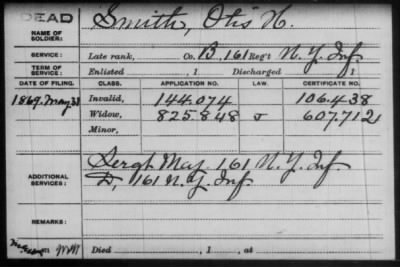 DEAD
NAME OF SOLDIER: Smith, Otis H.
SERVICE: Late rank, Co. B, 161 Reg't N.Y. Inf.
TERM OF SERVICE: Enlisted , 1 Discharged , 1
DATE OF FILING. CLASS. APPLICATION NO. LAW. CERTIFICATE NO.
1869. May 31 Invalid, 144.074 106.438
Widow, 825.848 607.712
Minor,
ADDITIONAL SERVICES: Sergt Maj. 161 N.Y. Inf.
D, 161 N.Y. Inf.
REMARKS:
Died , 1 , at